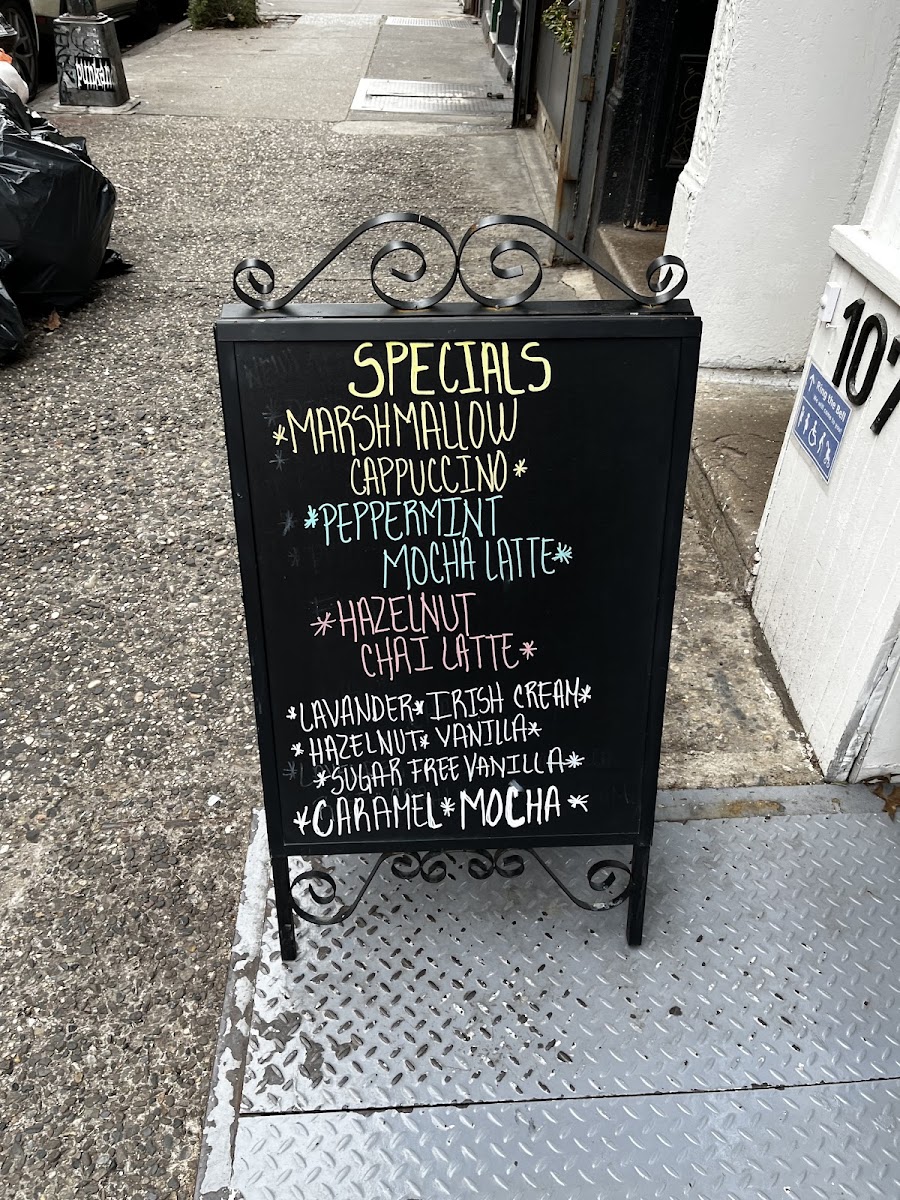 SPECIALS
*MARSHMALLOW
CAPPUCCINO*
*PEPPERMINT
MOCHA LATTE*
*HAZELNUT
CHAI LATTE*
*LAVANDER*IRISH CREAM*
*HAZELNUT*VANILLA*
*SUGAR FREE VANILLA*
*CARAMEL*MOCHA*
107
Ring the Bell
punkah